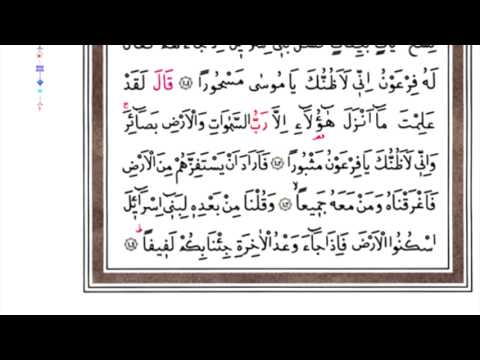 لَهُ فِرْعَوْنُ اِنّٖى لَاَظُنُّكَ يَامُوسٰى مَسْحُورًا ﴿١٠١﴾ قَالَ لَقَدْ
عَلِمْتَ مَٓا اَنْزَلَ هٰٓؤُلَٓاءِ اِلَّا رَبُّ السَّمٰوَاتِ وَالْاَرْضِ بَصَٓائِرَۚ
وَاِنّٖى لَاَظُنُّكَ يَافِرْعَوْنُ مَثْبُورًا ﴿١٠٢﴾ فَاَرَادَ اَنْ يَسْتَفِزَّهُمْ مِنَ الْاَرْضِ
فَاَغْرَقْنَاهُ وَمَنْ مَعَهُ جَمٖيعًاۙ ﴿١٠٣﴾ وَقُلْنَا مِنْ بَعْدِهٖ لِبَنٖٓى اِسْرَٓائٖلَ
اسْكُنُوا الْاَرْضَ فَاِذَا جَٓاءَ وَعْدُ الْاٰخِرَةِ جِئْنَا بِكُمْ لَفٖيفًاۜ ﴿١٠٤﴾